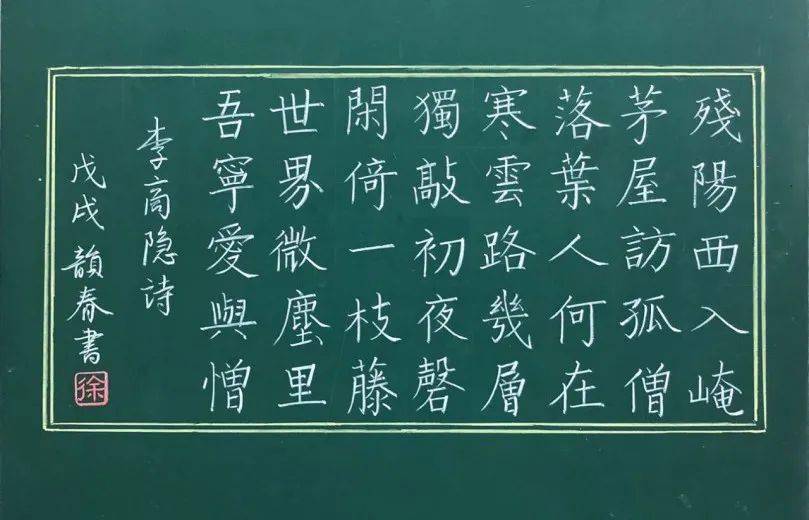 殘陽西入崦
茅屋訪孤僧
落葉人何在
寒雲路幾層
獨敲初夜磬
閑倚一枝藤
世界微塵里
吾寧愛與憎
李商隐詩
戊戌韻春書
徐